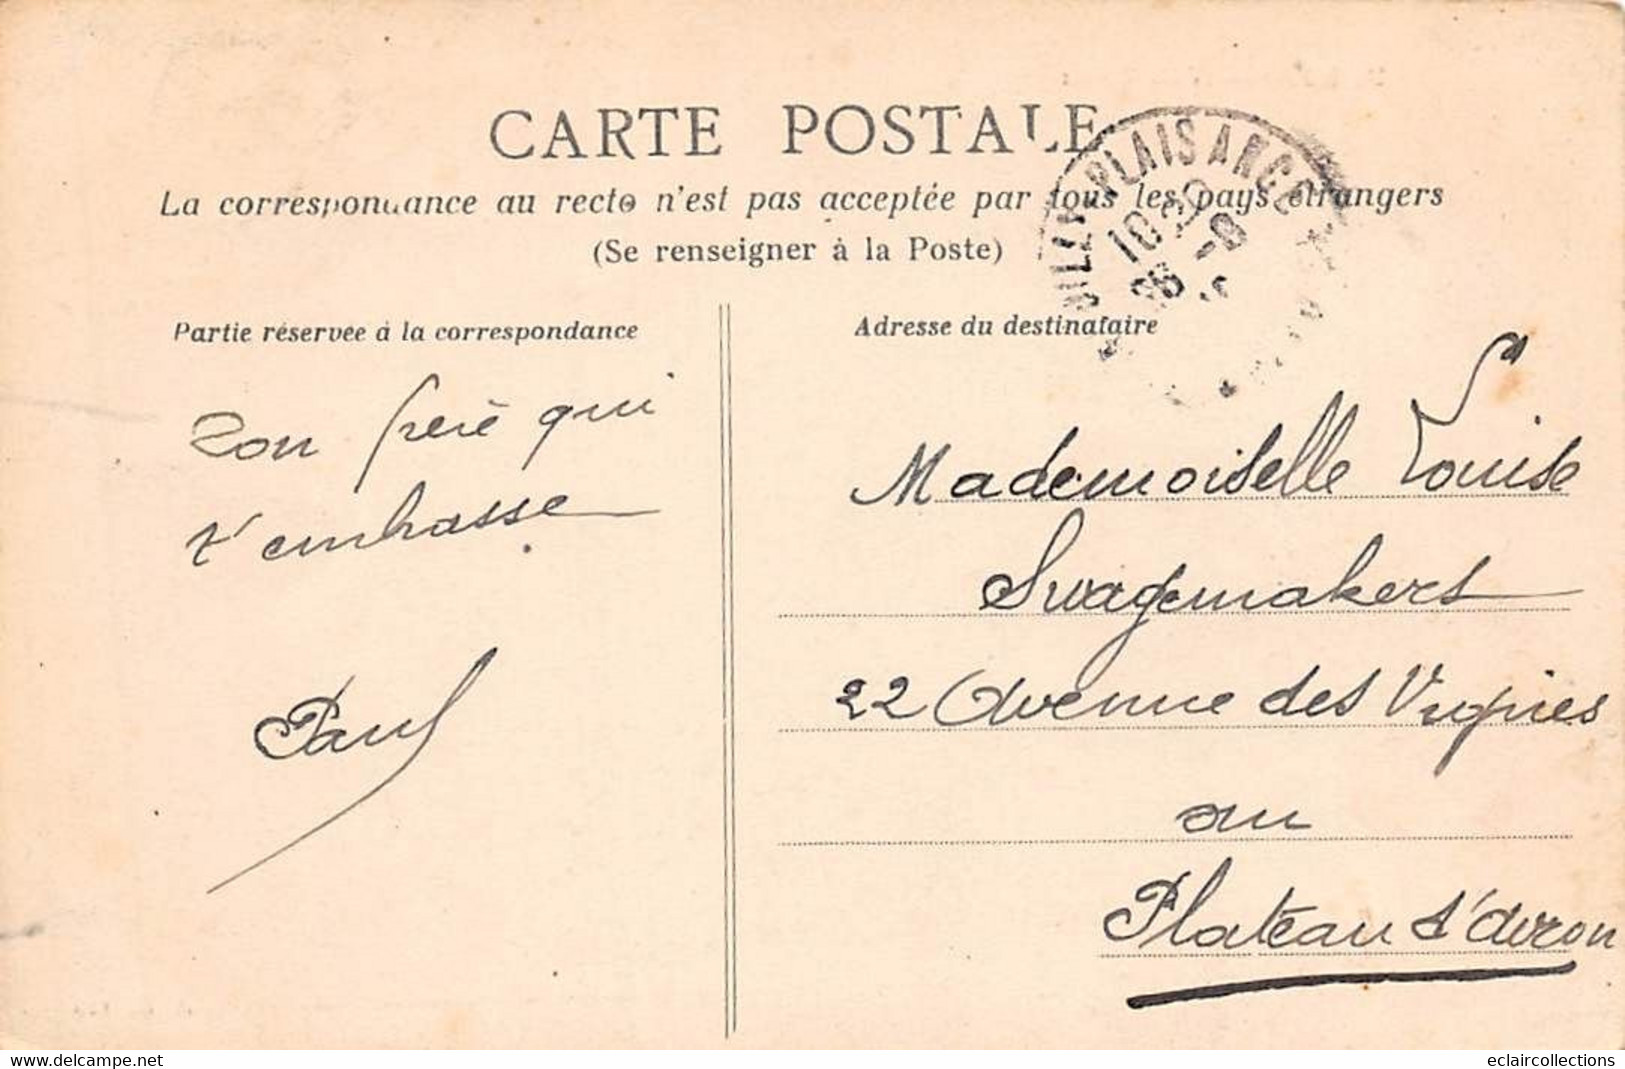 CARTE POSTALE
La correspondance au recto n'est pas acceptée par tous les pays étrangers
(Se renseigner à la Poste)
NEUILLY-PLAISANCE
Partie réservée à la correspondance
Adresse du destinataire
Ton frère qui
t'embrasse
Paul
Mademoiselle Louise
Swagemakers
22 Avenue des
au
Plateau d'avron
www.delcampe.net
eclaircollections